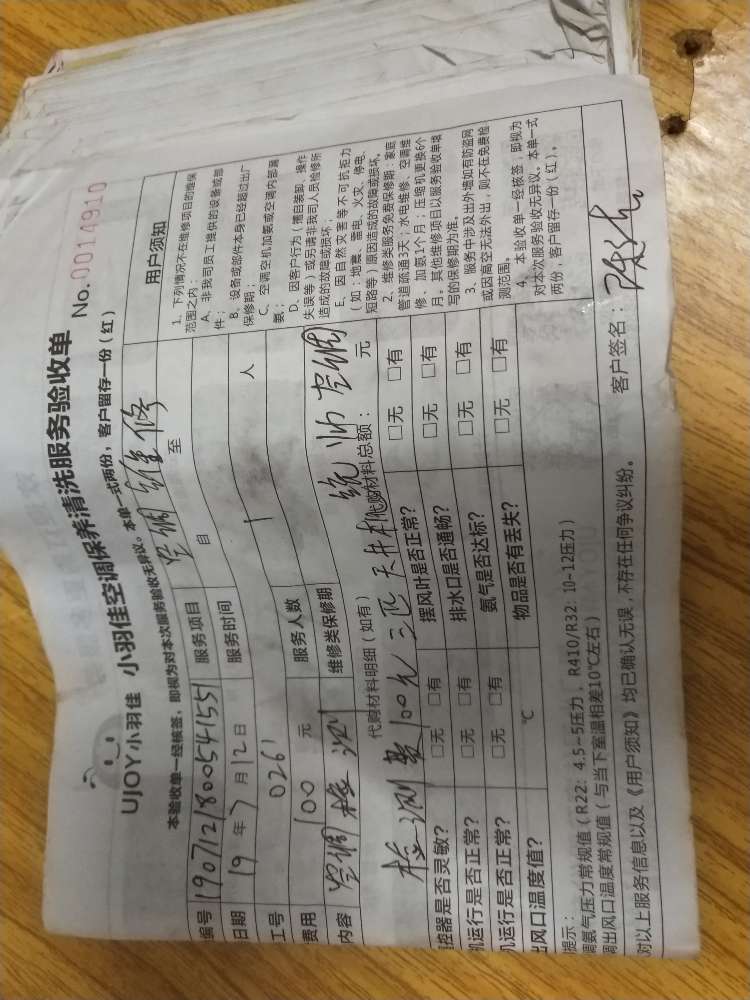 UJOY小羽佳 小羽佳空调保养清洗服务验收单 No.0014910
本验收单一经核签，即视为对本次服务验收无异议。本单一式两份，客户留存一份（红）
编号 1907121800541551 服务项目 空调维修
日期 19 年 7 月 12 日 服务时间 自 至
工号 0261 服务人数 1 人
费用 100 元 维修类保修期
内容 空调检测 统帅空调
代购材料明细（如有） 代购材料总额： 元
检测费100元 三匹天井机
控器是否灵敏？ □无 □有 摆风叶是否正常？ □无 □有
机运行是否正常？ □无 □有 排水口是否通畅？ □无 □有
机运行是否正常？ □无 □有 氨气是否达标？ □无 □有
出风口温度值？ ℃ 物品是否有丢失？ □无 □有
用户须知
1、下列情况不在维修项目的维保
范围之内：
A、非我司员工提供的设备或部
件；
B、设备或部件本身已经超过出厂
保修期；
C、空调空机加氨或空调内部漏
氨；
D、因客户行为（擅自装卸、操作
失误等）或另请非我司人员检修所
造成的故障或损坏；
E、因自然灾害等不可抗拒力
（如：地震、雷电、火灾、停电、
短路等）原因造成的故障或损坏。
2、维修类服务免费保修期：家庭
管道疏通3天；水电维修、空调维
修、加氨1个月；压缩机更换6个
月。其他维修项目以服务验收单填
写的保修期为准。
3、服务中涉及出外墙如有防盗网
或因高空无法外出，则不在免费检
测范围。
4、本验收单一经核签，即视为
对本次服务验收无异议。本单一式
两份，客户留存一份（红）。
提示：
调氨气压力常规值（R22：4.5~5压力，R410/R32，10-12压力）
调出风口温度常规值（与当下室温相差10℃左右）
对以上服务信息以及《用户须知》均已确认无误，不存在任何争议纠纷。 客户签名：